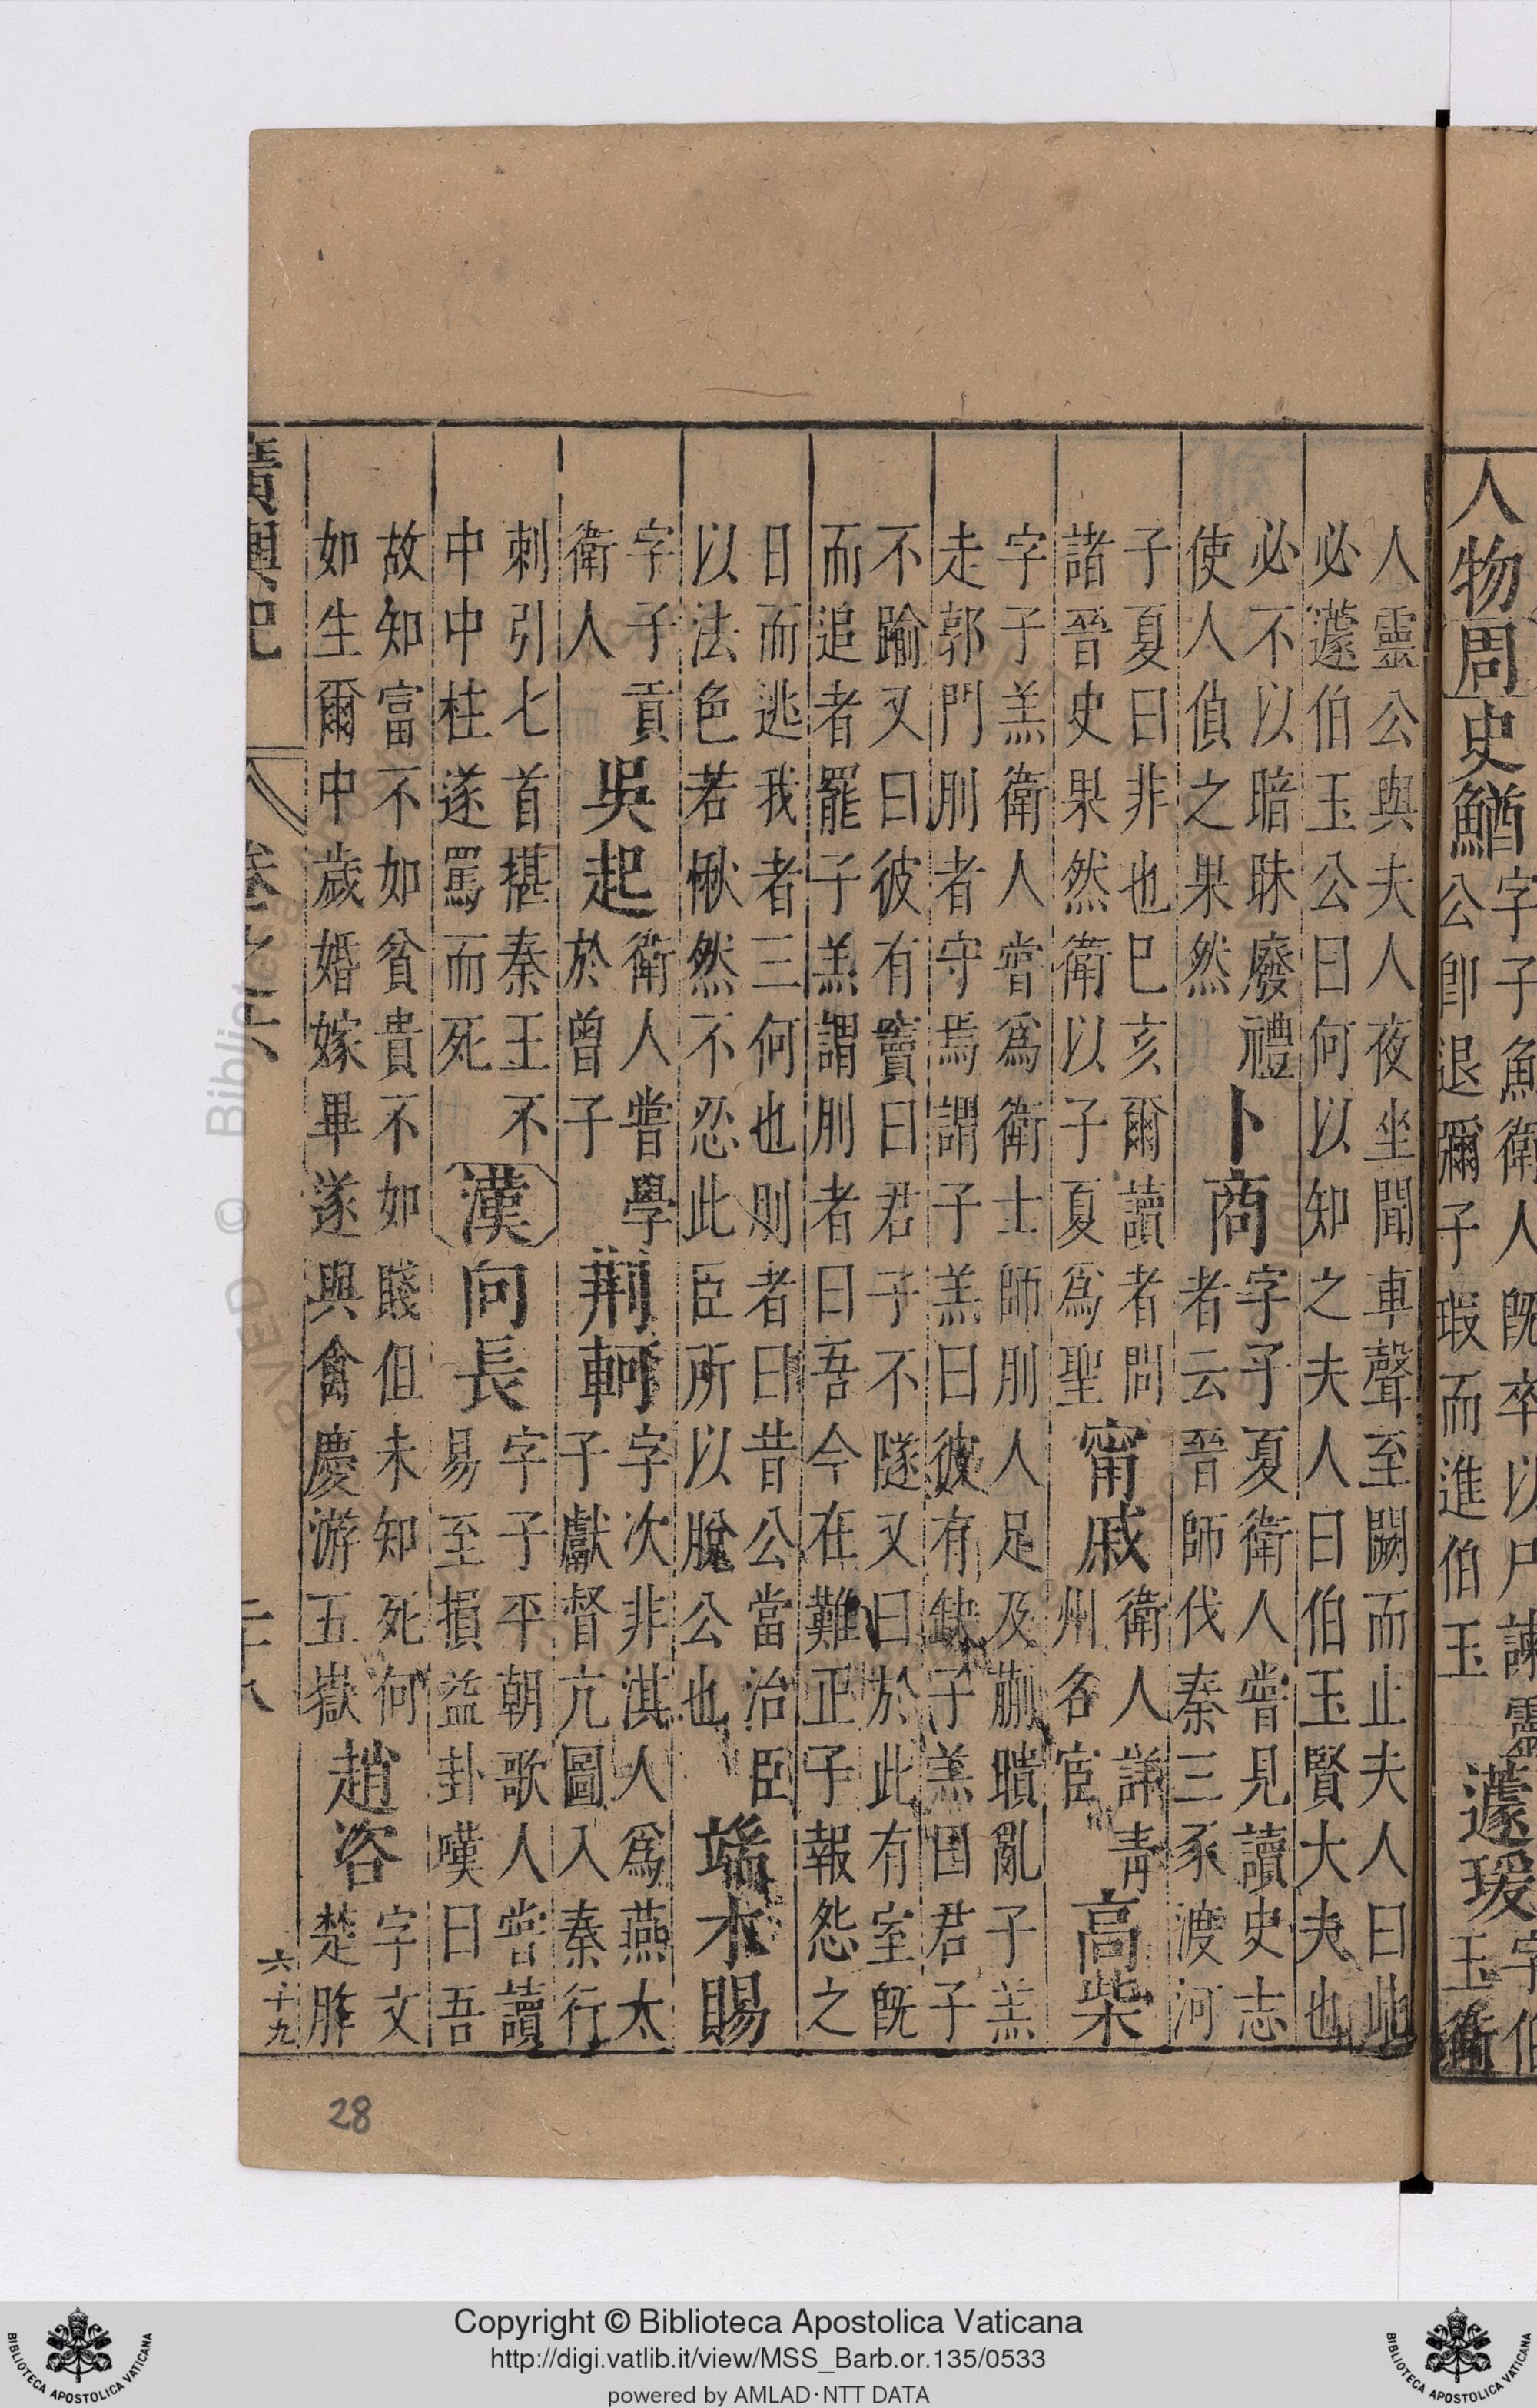 人物周史鰌
字子魚衛人既卒以尸諫靈
公卽退彌子瑕而進伯玉
蘧瑗
字伯
玉衛
人靈公與夫人夜坐聞車聲至闕而止夫人曰此
必蘧伯玉公曰何以知之夫人曰伯玉賢大夫也
必不以暗昧廢禮
使人偵之果然
卜商
字子夏衛人嘗見讀史志
者云晉師伐秦三豕渡河
子夏曰非也巳亥爾讀者問
諸晉史果然衛以子夏爲聖
甯戚
衛人諱青
州各宦
高柴
字子羔衛人嘗爲衛士師刖人足及蒯聵亂子羔
走郭門刖者守焉謂子羔曰彼有缺子羔曰君子
不踰又曰彼有竇曰君子不隧又曰於此有室旣
而追者罷子羔謂刖者曰吾今在難正子報怨之
日而逃我者三何也則者曰昔公當治臣
以法色若愀然不忍此臣所以脫公也
端木賜
字子貢
衛人
吳起
衛人嘗學
於曾子
荆軻
字次非淇人爲燕太
子獻督亢圖入秦行
刺引七首揕秦王不
中中柱遂罵而死
漢
向長
字子平朝歌人嘗讀
易至損益卦嘆曰吾
故知富不如貧貴不如賤但未知死何
如生爾中歲婚嫁畢遂與禽慶游五嶽
趙咨
字文
楚胙
廣輿記 卷之六
六十九
28
Copyright © Biblioteca Apostolica Vaticana
http://digi.vatlib.it/view/MSS_Barb.or.135/0533
powered by AMLAD·NTT DATA
BIBLIOTECA APOSTOLICA VATICANA
BIBLIOTECA APOSTOLICA VATICANA